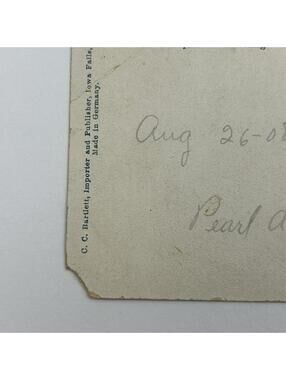 C. C. Bartlett, Importer and Publisher, Iowa Falls,
Made in Germany.
Aug 26-08
Pearl